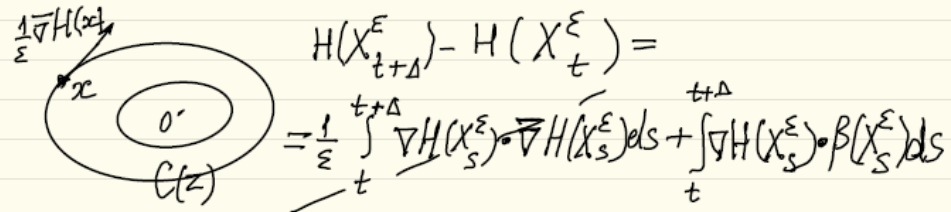 1/ε ∇̄H(x)
x
0
C(z)
H(X^ε_{t+Δ}) - H(X^ε_t) =
= 1/ε ∫_t^{t+Δ} ∇H(X^ε_s)·∇̄H(X^ε_s)ds + ∫_t^{t+Δ} ∇H(X^ε_s)·β(X^ε_s)ds